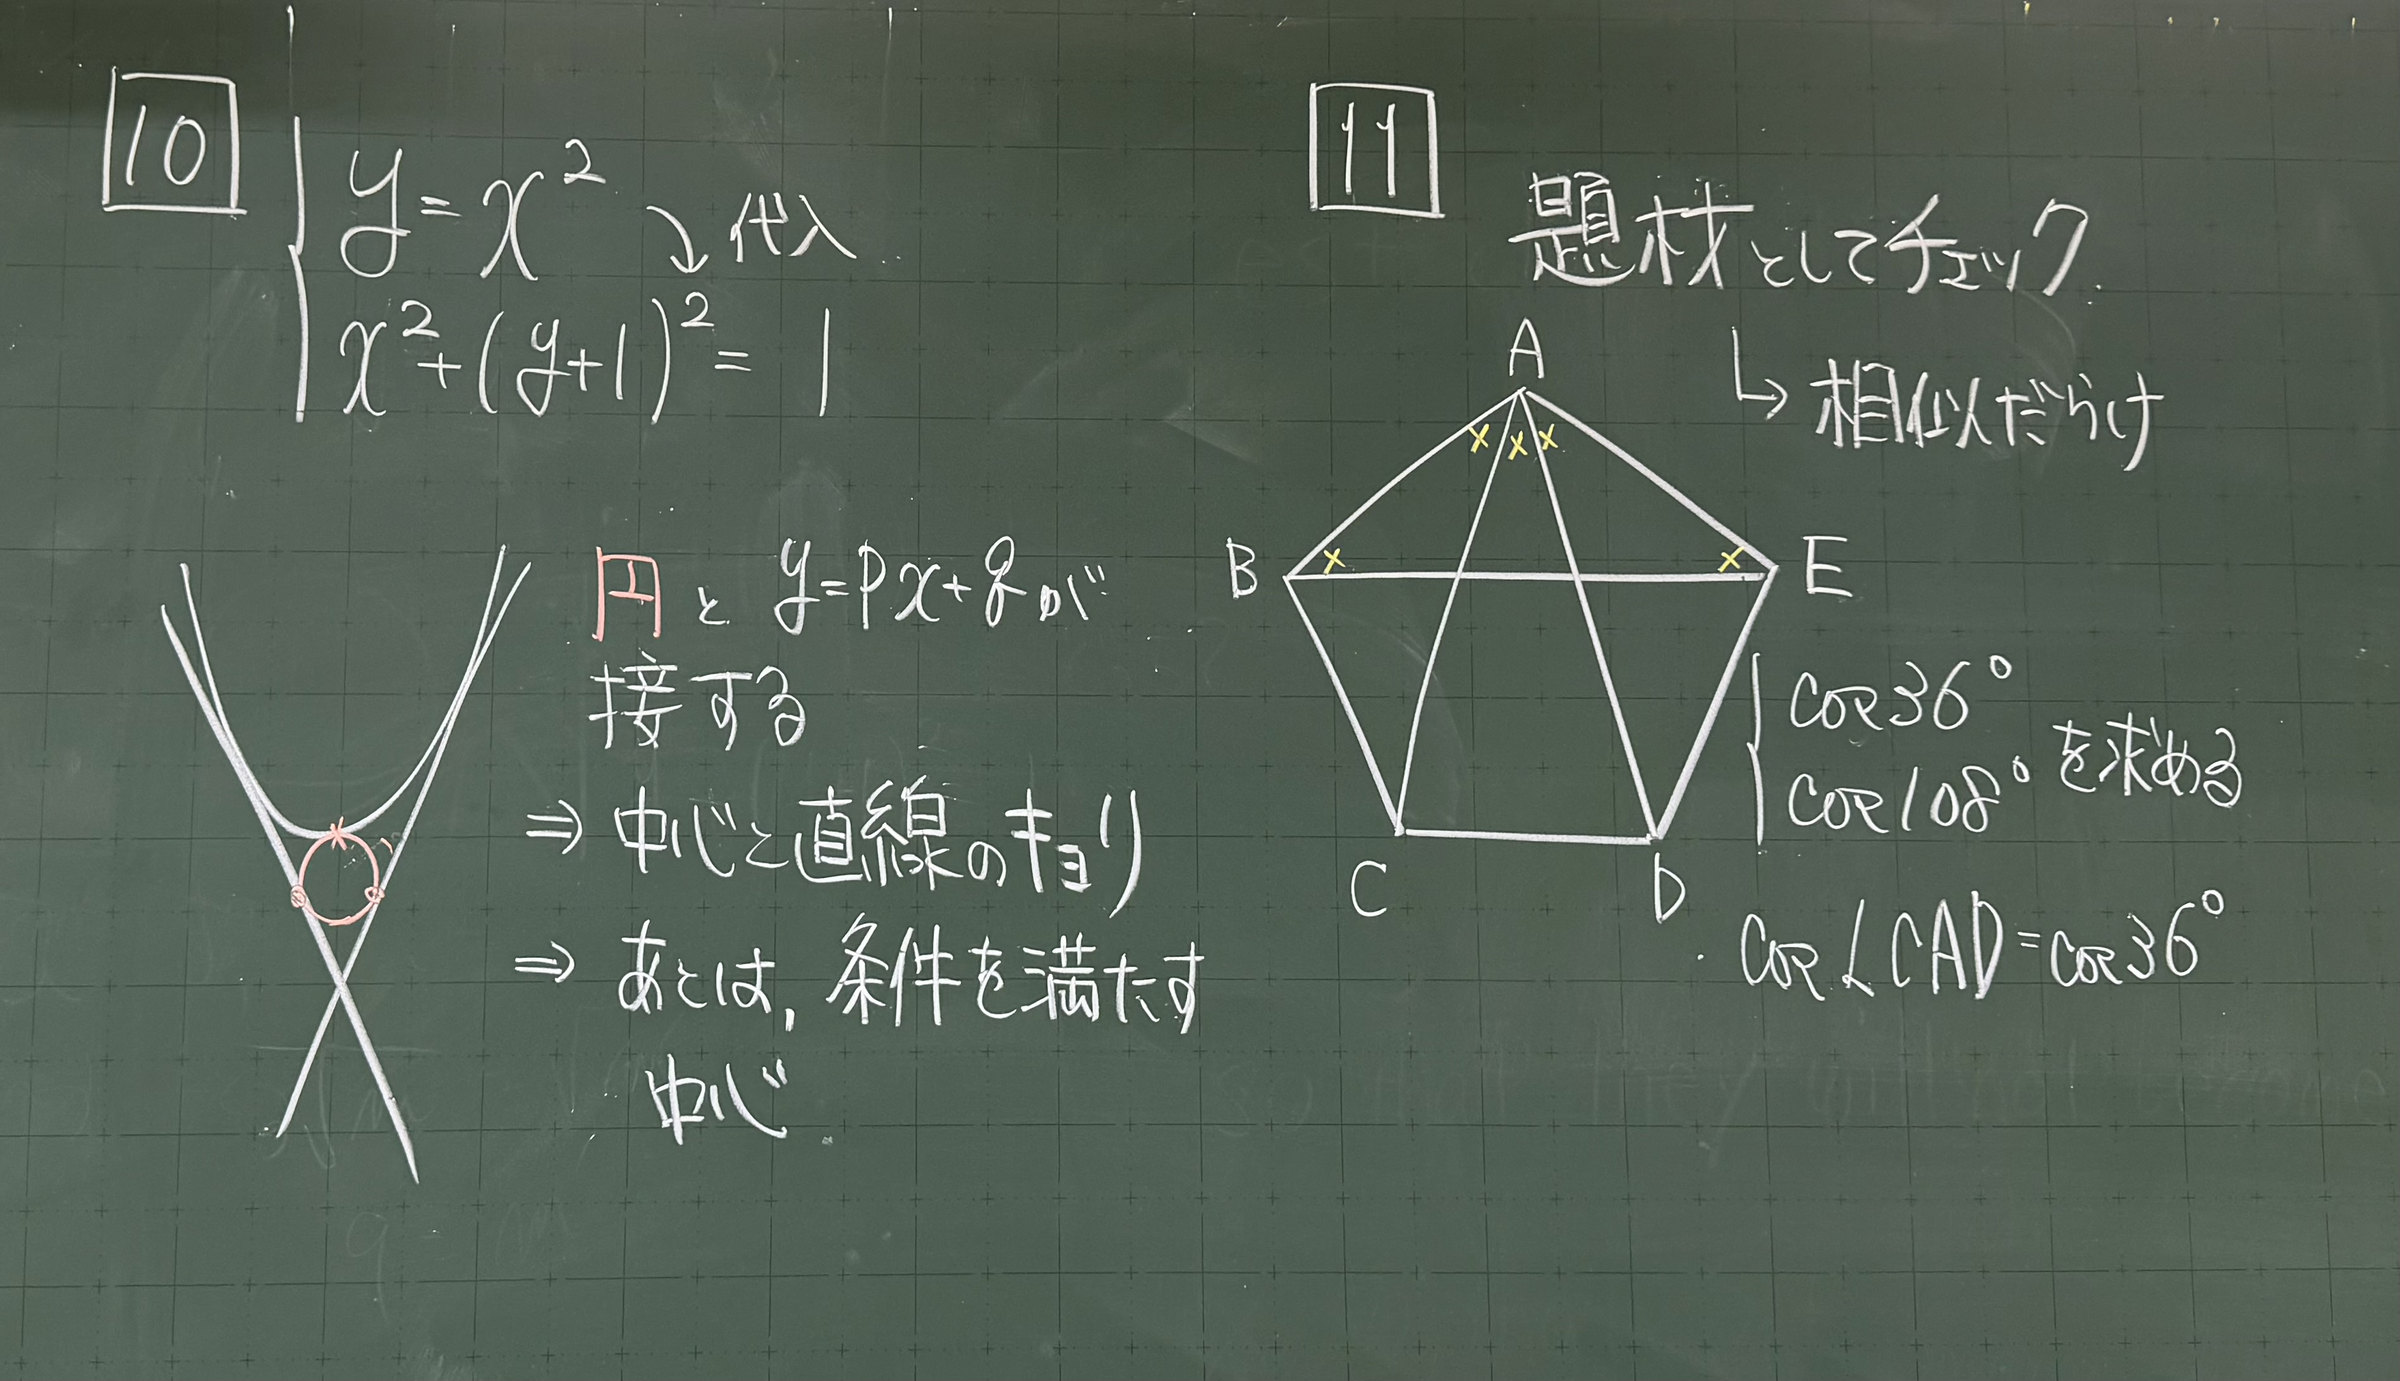 10
y=x² 代入
x²+(y+1)²=1
円と y=px+qが
接する
⇒ 中心と直線のキョリ
⇒ あとは,条件を満たす
中心
11
題材としてチェック
↳ 相似だらけ
A
B
E
C
D
cos36°
cos108° を求める
cos∠CAD=cos36°